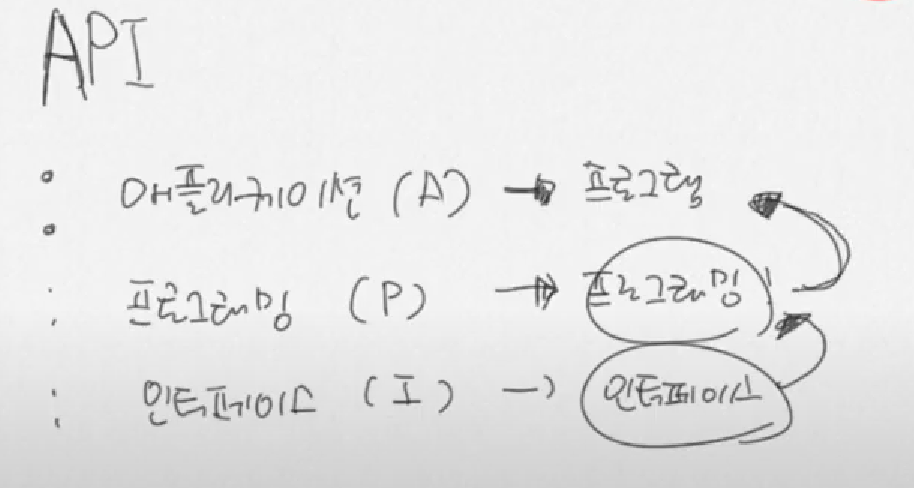 API
애플리케이션 (A) → 프로그램
프로그래밍 (P) → 프로그래밍
인터페이스 (I) → 인터페이스